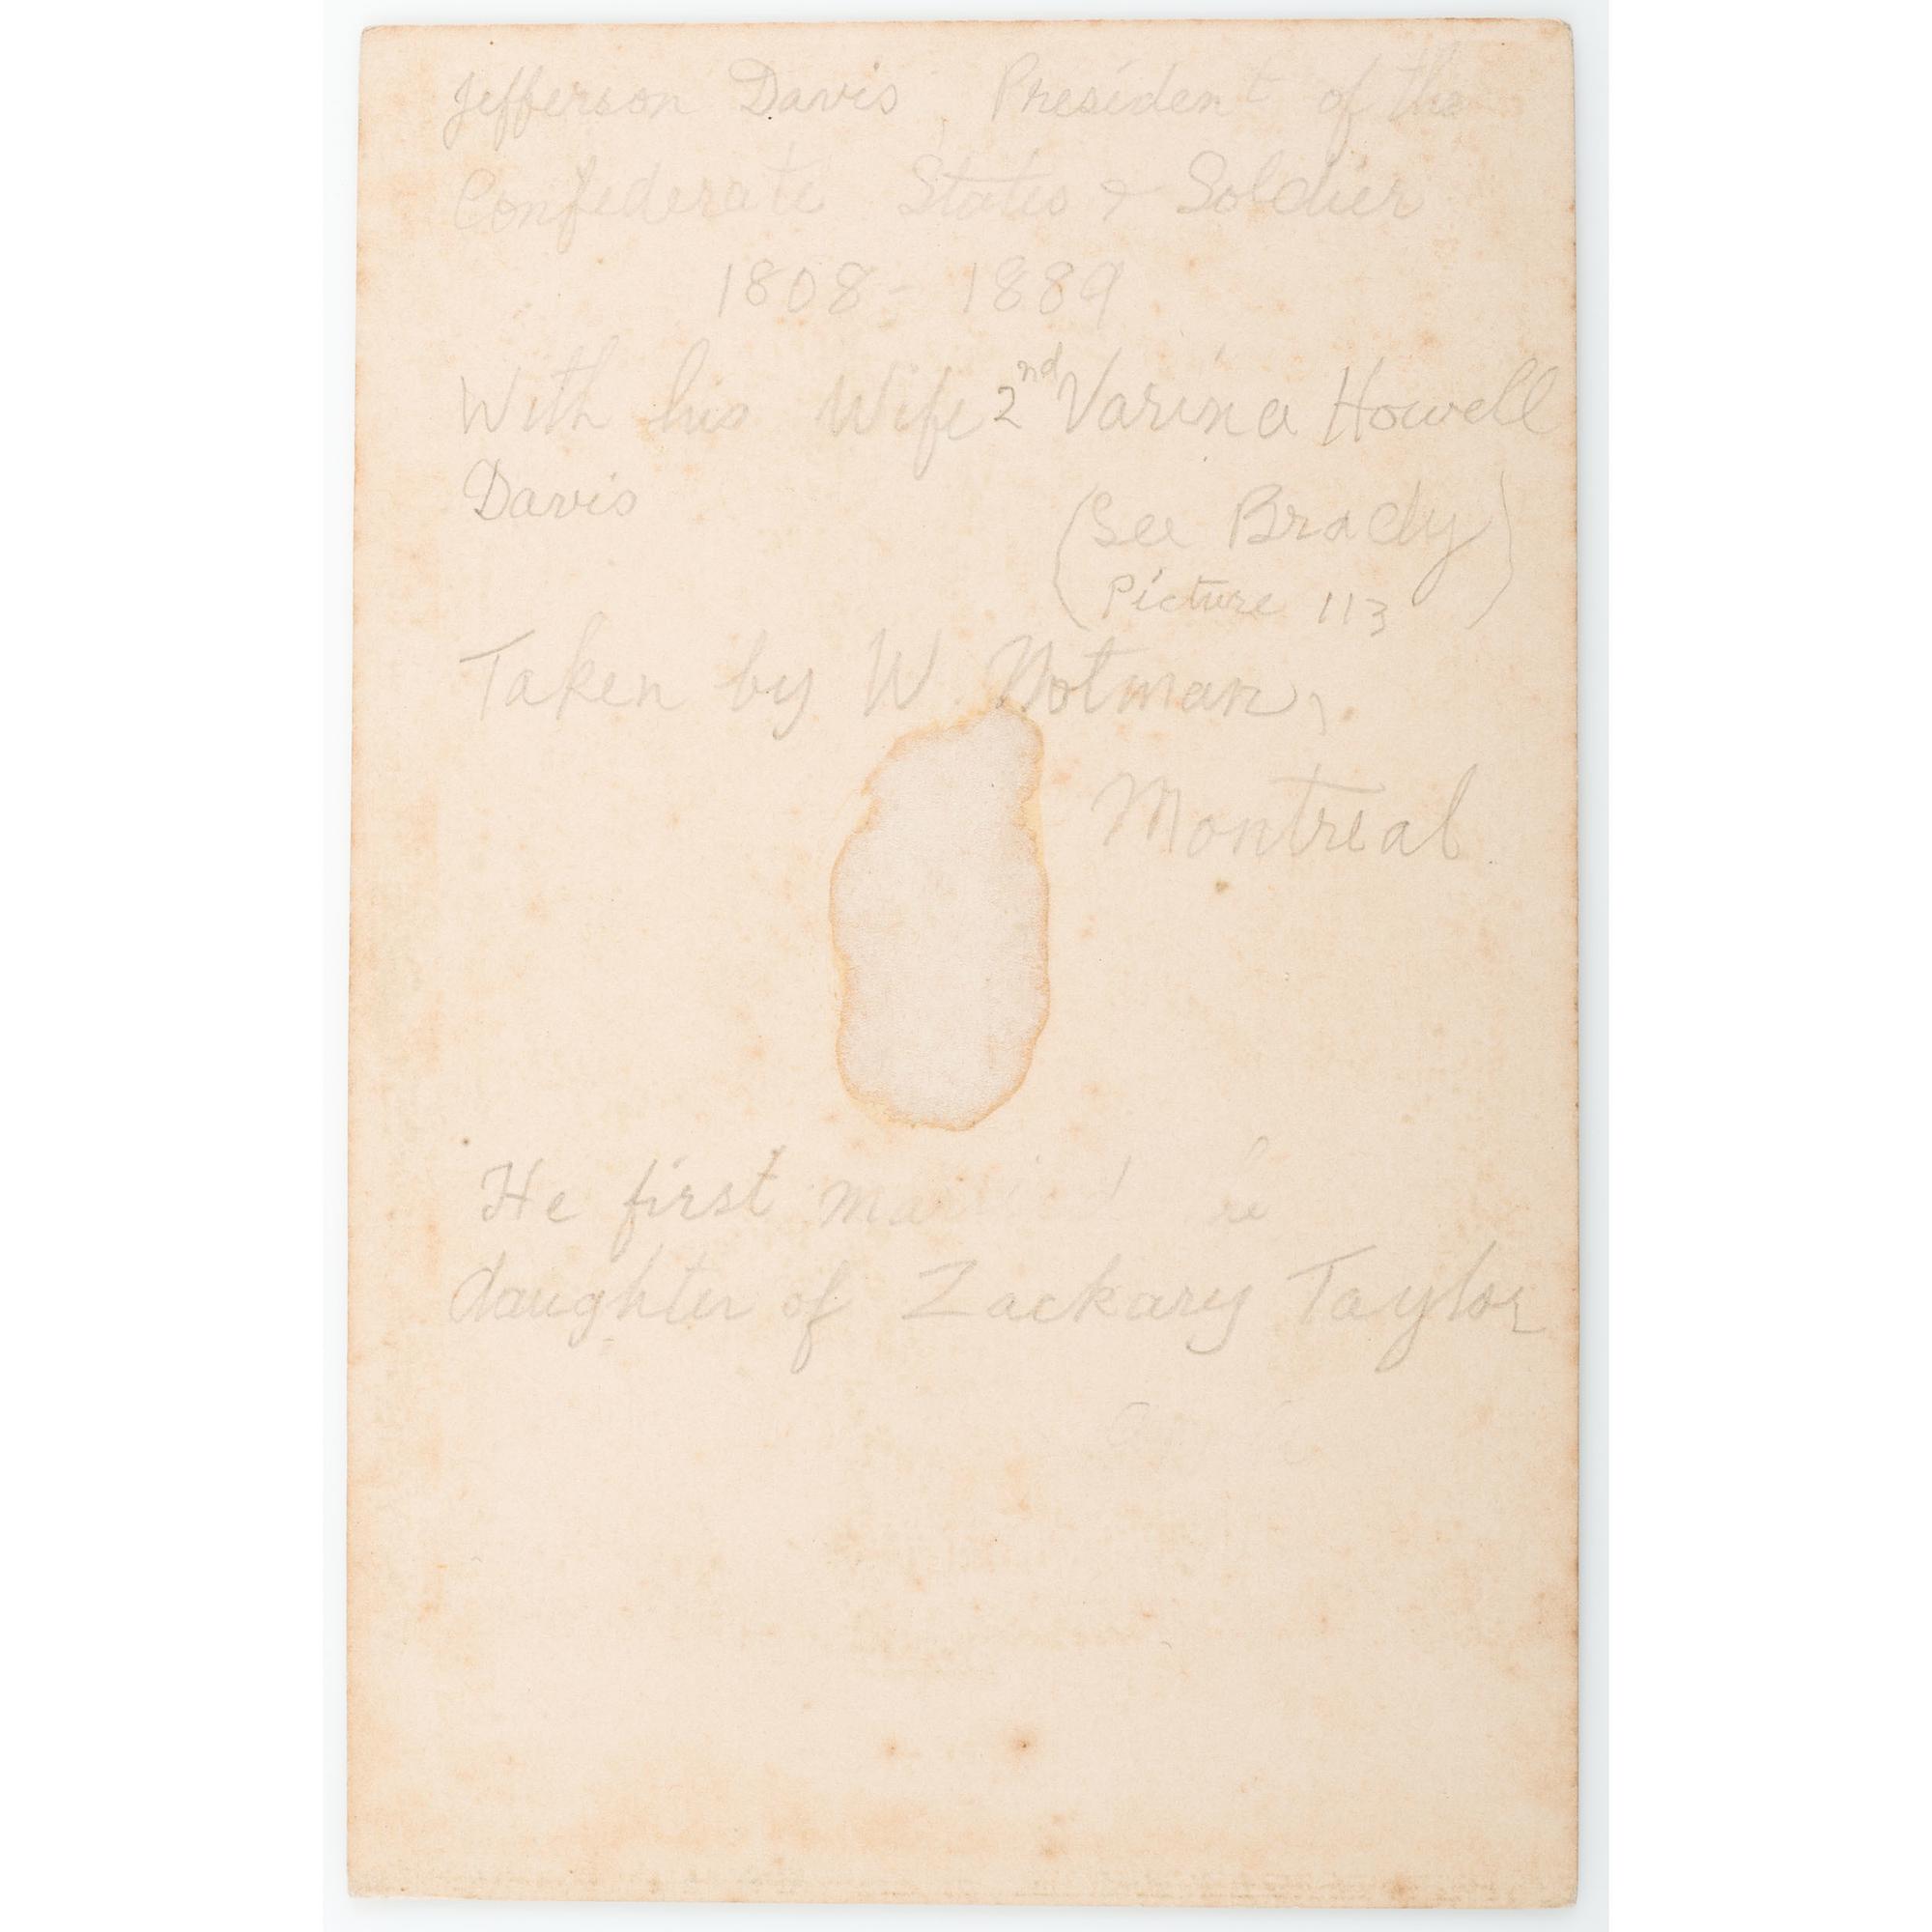 Jefferson Davis, President of the
Confederate States & Soldier
1808 - 1889
With his Wife 2nd Varina Howell
Davis
(See Brady
Picture 113)
Taken by W. Notman,
Montreal
He first married
daughter of Zackary Taylor